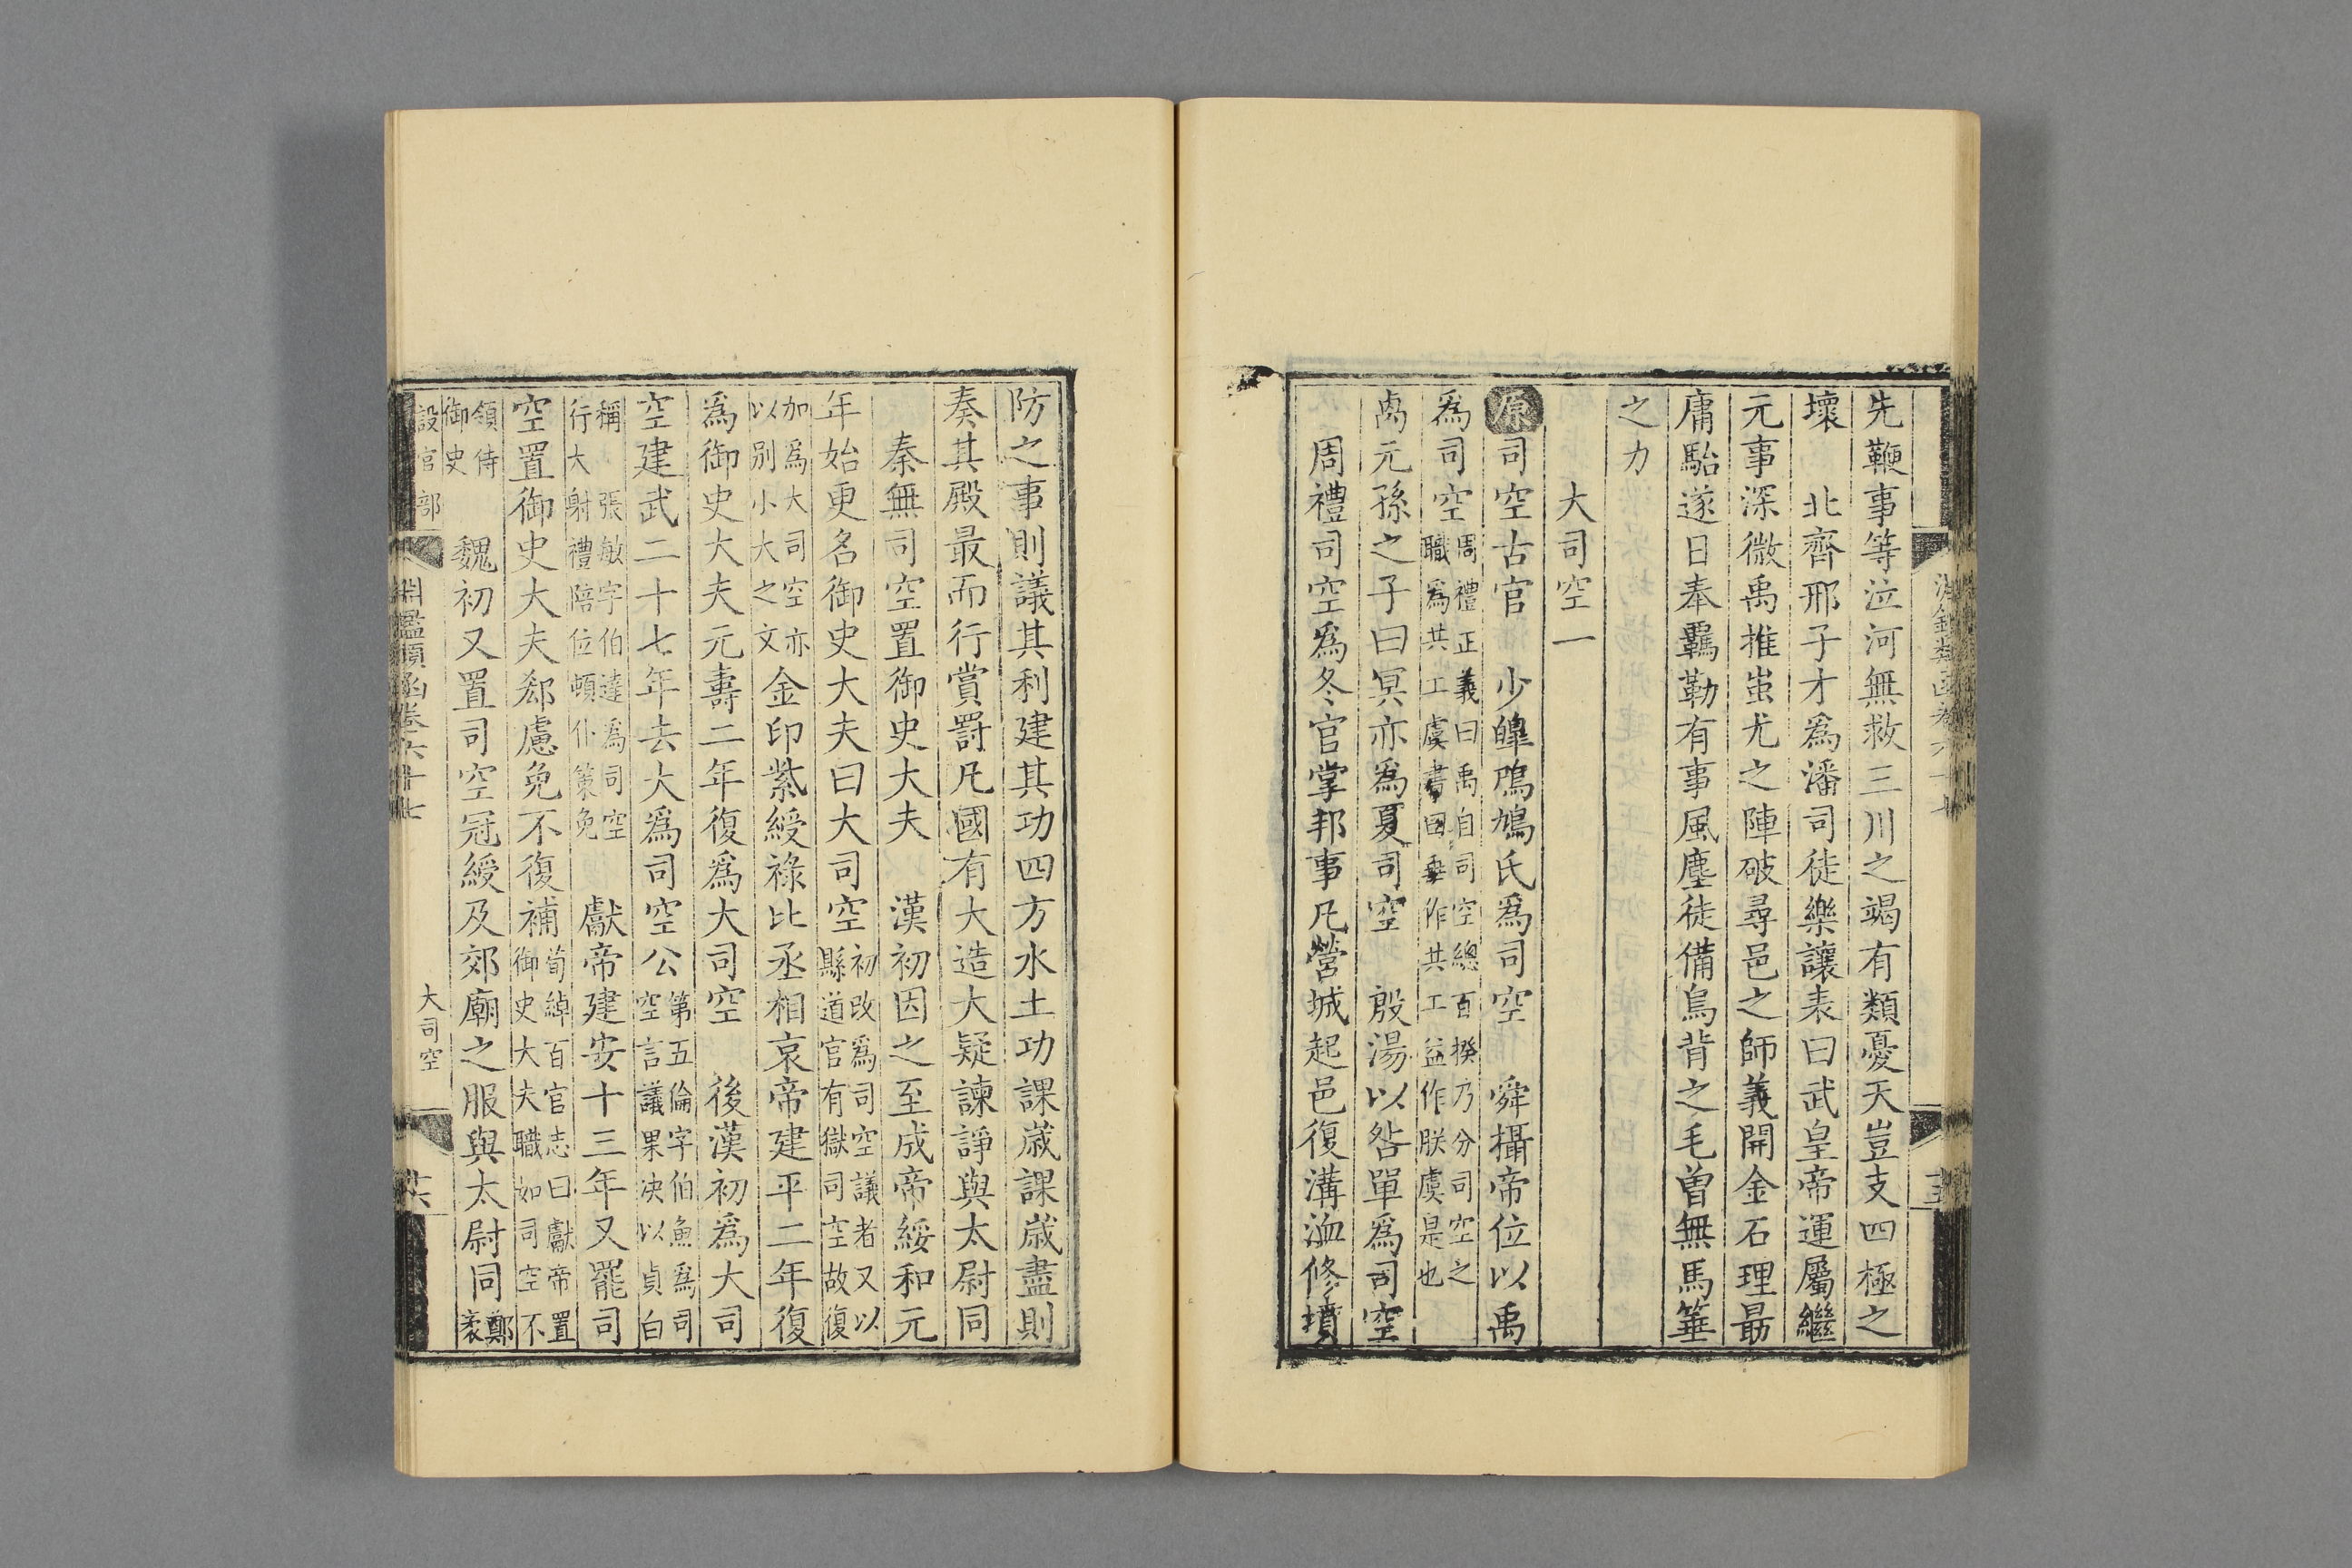 先鞭事等泣河無救三川之竭有類憂天豈支四極之
壞　北齊邢子才爲潘司徒樂讓表曰武皇帝運屬繼
元事深微禹推蚩尤之陣破尋邑之師義開金石理最
庸駘遂日奉羈勒有事風塵徒備鳥背之毛曽無馬箠
之力
大司空一
原司空古官　少皥鳲鳩氏爲司空　舜攝帝位以禹
爲司空周禮正義曰禹自司空總百揆乃分司空之職爲共工虞書曰垂作共工益作朕虞是也
禼元孫之子曰冥亦爲夏司空　殷湯以咎單爲司空
周禮司空爲冬官掌邦事凡營城起邑復溝洫修墳
防之事則議其利建其功四方水土功課歲課歲盡則
奏其殿最而行賞罰凡國有大造大疑諫諍與太尉同
秦無司空置御史大夫　漢初因之至成帝綏和元
年始更名御史大夫曰大司空初改爲司空議者又以縣道官有獄司空故復
加爲大司空亦以別小大之文金印紫綬祿比丞相哀帝建平二年復
爲御史大夫元壽二年復爲大司空　後漢初爲大司
空建武二十七年去大爲司空公第五倫字伯魚爲司空言議果决以貞白
稱　張敏字伯達爲司空行大射禮陪位頓仆策免　獻帝建安十三年又罷司
空置御史大夫郄慮免不復補荀綽百官志曰獻帝置御史大夫職如司空不
領侍御史　魏初又置司空冠綬及郊廟之服與太尉同鄭袤
設官部
淵鑑類函卷六十七
大司空
十六